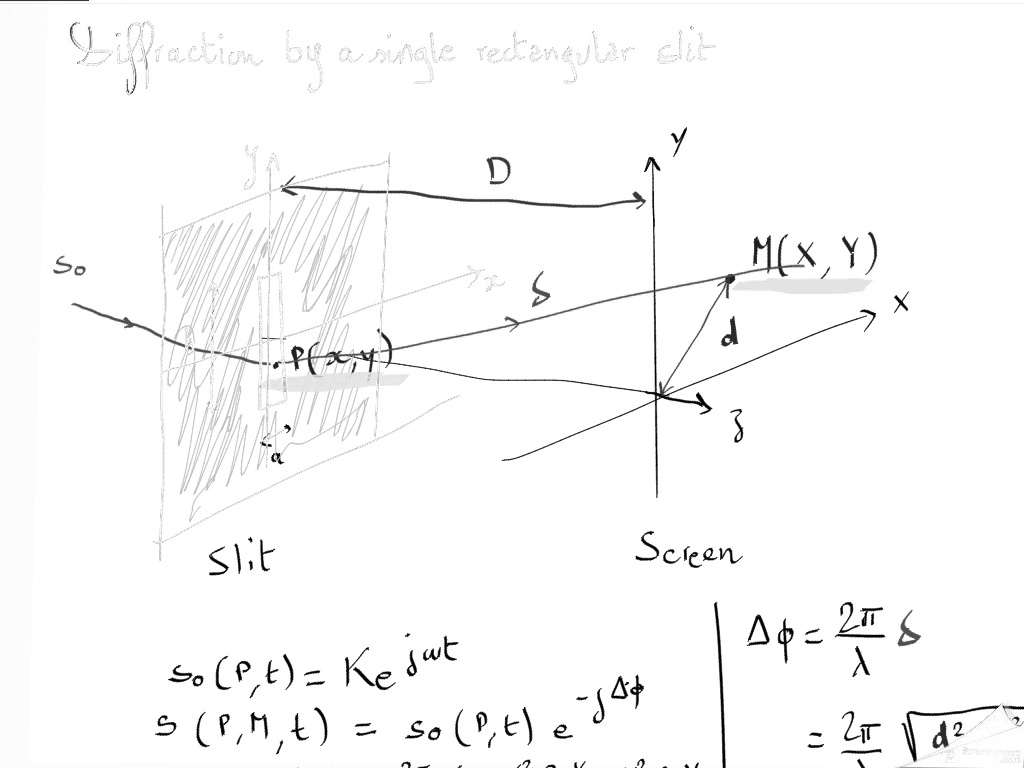 Diffraction by a single rectangular slit
y
D
Y
So
x
δ
M(X, Y)
d
X
P(x,y)
z
a
Slit
Screen
so(P,t) = Ke^jωt
s(P,M,t) = so(P,t) e^-jΔϕ
Δϕ = 2π/λ δ
= 2π/λ √d²